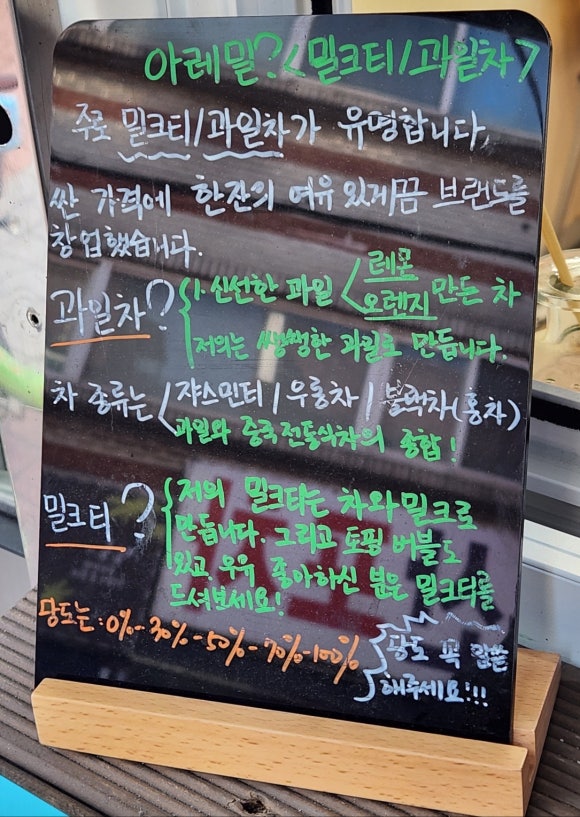 아레밀? <밀크티/과일차>
주로 밀크티/과일차가 유명합니다.
싼 가격에 한잔의 여유 있게끔 브랜드를
창업했습니다.
과일차? { 1. 신선한 과일 < 레몬 오렌지 만든 차
저의는 쌩쌩한 과일로 만듭니다.
차 종류는 < 쟈스민티 / 우롱차 / 블랙차(홍차)
과일와 중국 전통식차의 종합!
밀크티? { 저의 밀크티는 차와 밀크로
만듭니다. 그리고 토핑 버블도
있고, 우유 좋아하신 분은 밀크티를
드셔보세요!
당도는: 0%-30%-50%-70%-100% { 당도 꼭 말씀
해주세요!!!